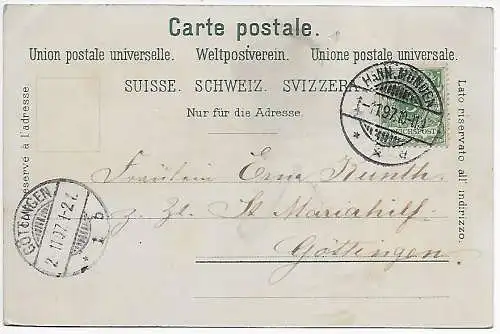 Carte postale.
Union postale universelle. Weltpostverein. Unione postale universale.
SUISSE. SCHWEIZ. SVIZZERA
Nur für die Adresse.
réservé à l'adresse
Lato riservato all' indirizzo.
HANN. MÜNDEN
1-11.97.10-11
REICHSPOST
Fräulein Erna Kunth.
z. Zt. St Mariahilf.
Göttingen
GÖTTINGEN
2.11.97.1-2